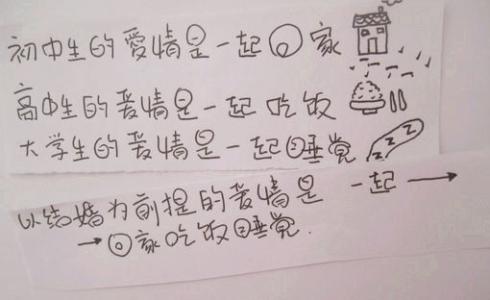 初中生的爱情是一起回家
高中生的爱情是一起吃饭
大学生的爱情是一起睡觉
zzz
以结婚为前提的爱情是 一起→
→回家吃饭睡觉.